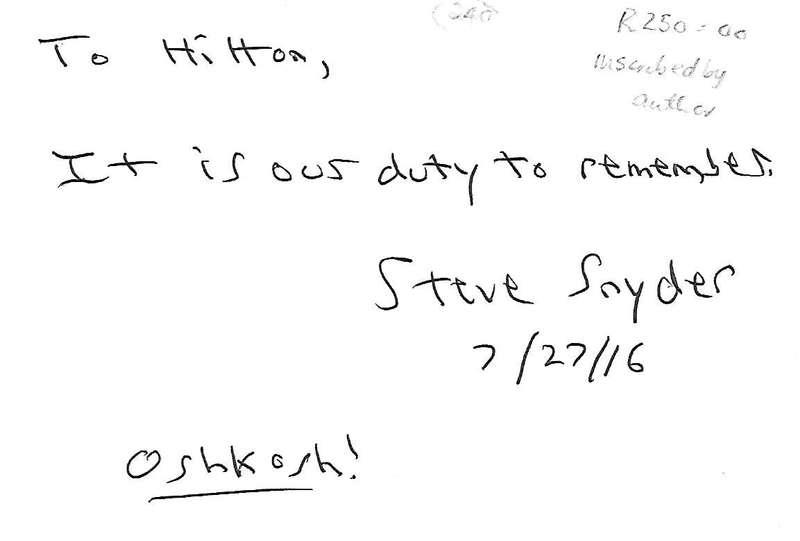 (240
R250=00
inscribed by
author
To Hilton,
It is our duty to remember.
Steve Snyder
7/27/16
Oshkosh!